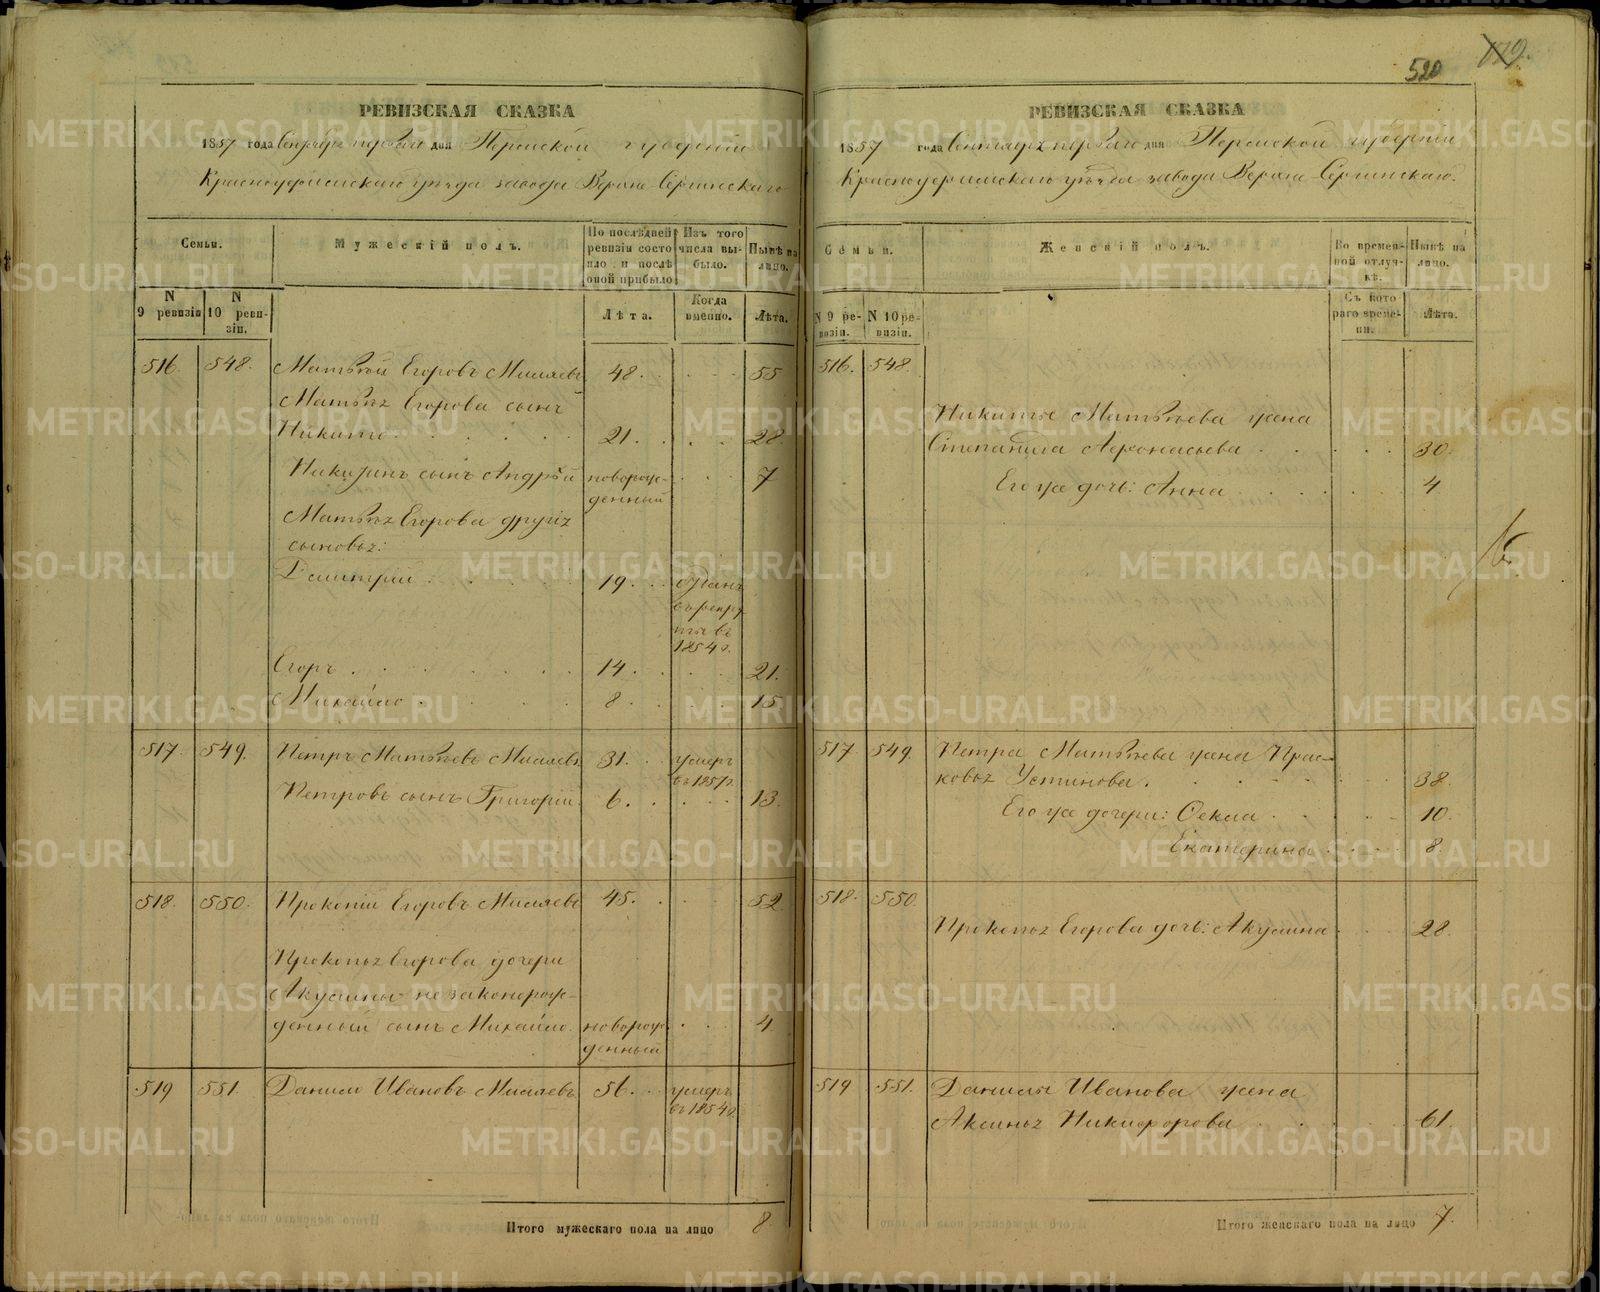 520
РЕВИЗСКАЯ СКАЗКА
1857 года Сентября первого дня Пермской губернии
Красноуфимскаго уезда завода Верхне-Сергинскаго
Семьи.
Мужескій полъ.
По послѣдней ревизіи состояло и послѣ оной прибыло
Изъ того числа выбыло.
Нынѣ на лицо.
N 9 ревизіи
N 10 ревизіи.
Лѣта.
Когда именно.
Лѣта.
516. 548. Матвѣй Егоровъ Мисляевъ 48. 55
Матвѣя Егорова сынъ
Никита 21. 28
Никитинъ сынъ Андрей новорож- 7
денный
Матвѣя Егорова другіе
сыновья:
Дмитрій 19. отданъ
въ рекру
ты въ
1854 г.
Егоръ 14. 21.
Михайло 8. 15
517. 549. Петръ Матвѣевъ Мисляевъ 31. умеръ
въ 1857 г.
Петровъ сынъ Григорій 6. 13.
518. 550. Прокопій Егоровъ Мисляевъ 45. 52
Прокопья Егорова дочери
Акулины незаконорож-
денный сынъ Михайло новорож- 4
денный
519 551. Данило Ивановъ Мисляевъ 56. умеръ
въ 1854 г.
Итого мужескаго пола на лицо 8.
РЕВИЗСКАЯ СКАЗКА
1857 года Сентября первого дня Пермской губерніи
Красноуфимскаго уѣзда завода Верхне-Сергинскаго.
Семьи.
Женскій полъ.
Во временной отлучкѣ.
Нынѣ на лицо.
N 9 ревизіи.
N 10 ревизіи.
Съ котораго времени.
Лѣта.
516. 548.
Никиты Матвѣева жена
Степанида Афонасьева 30.
Его же дочь: Анна 4
517 549. Петра Матвѣева жена Прас-
ковья Устинова. 38.
Его же дочери: Фекла 10.
Екатерина 8.
518. 550.
Прокопья Егорова дочь: Акулина 28.
519 551. Данилы Иванова жена
Аксинья Никифорова 61.
Итого женскаго пола на лицо 7.
METRIKI.GASO-URAL.RU